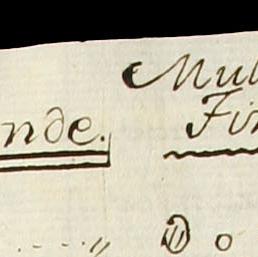 Mul
nde. Fin
D o